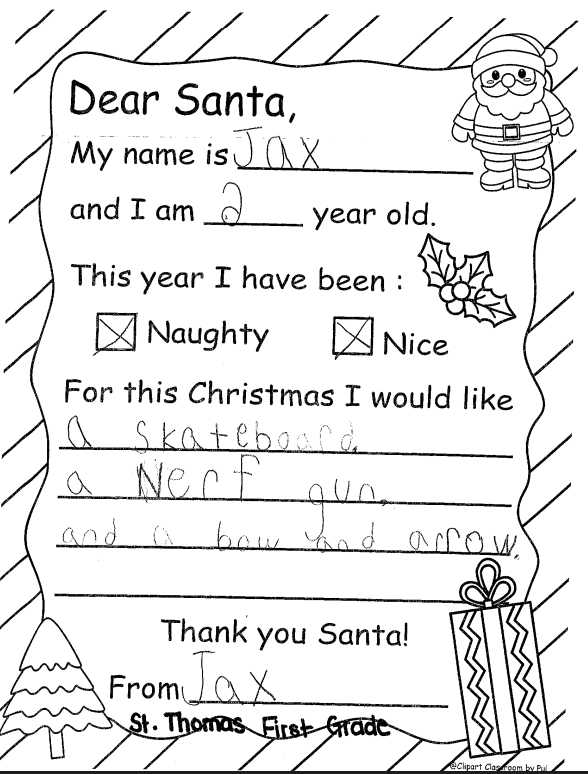 Dear Santa,
My name is Jax
and I am 2 year old.
This year I have been :
Naughty Nice
For this Christmas I would like
a skateboard.
a Nerf gun.
and a bow and arrow.
Thank you Santa!
From Jax
St. Thomas First Grade
@Clipart Classroom by Pui